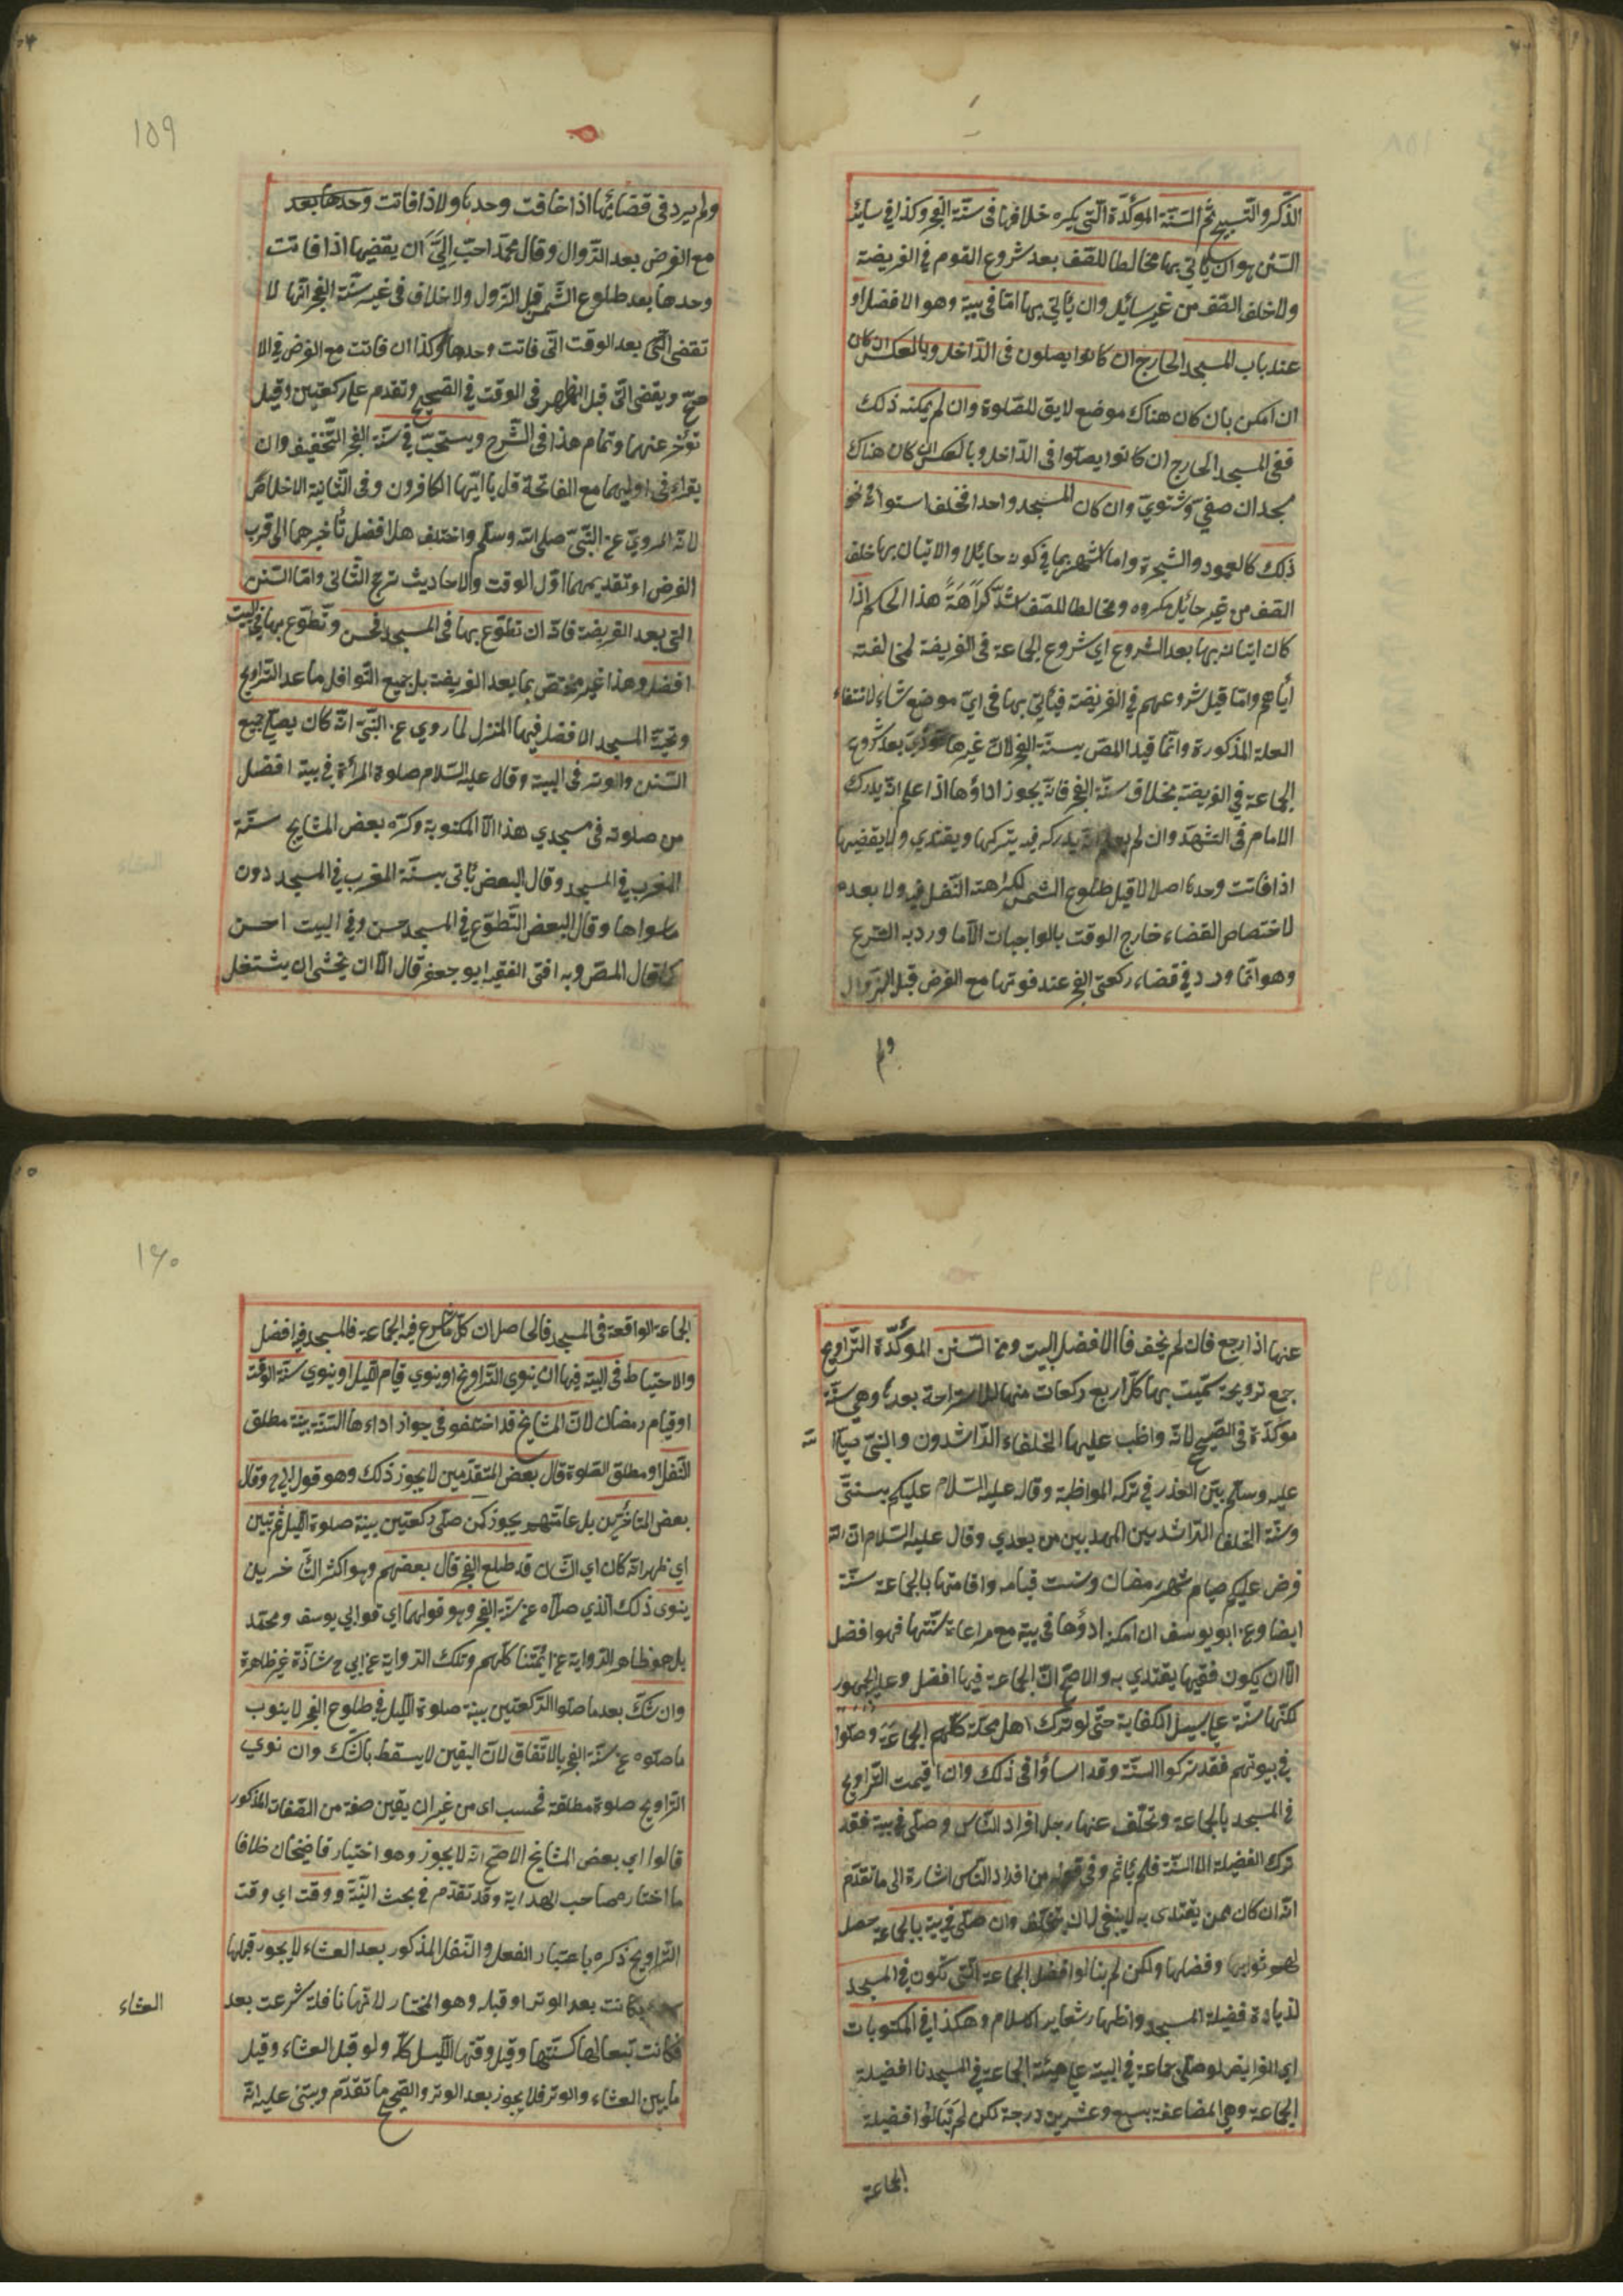 الذكر والتسبيح ثم السنة المؤكدة التي يكره خلافها في سنة الفجر وكذا في سائر
السنن هو ان لا يأتي بها مخالطا للصف بعد شروع القوم في الفريضة
ولا خلف الصف من غير سائل وان يأتي بها اما في بيته وهو الافضل او
عند باب المسجد الخارج ان كانوا يصلون في الداخل وبالعكس ان كان
ان امكن بان كان هناك موضع لايق للصلوة وان لم يمكنه ذلك
ففي المسجد الخارج ان كانوا يصلوا في الداخل وبالعكس ان كان هناك
مسجدان صيفي وشتوي وان كان المسجد واحدا فخلف استوانة ونحو
ذلك كالعمود والشجرة واما اشبههما في كونه حائلا والاتيان بها خلف
الصف من غير حائل مكروه ومخالطا للصف اشد كراهة هذا الحكم اذا
كان اتيانه بها بعد الشروع اي شروع الجماعة في الفريضة لمخالفته
اياهم واما قبل شروعهم في الفريضة فيأتي بها في اي موضع شاء لانتفاء
العلة المذكورة وانما قيد المص بسنة الفجر لان غيرها بعد شروع
الجماعة في الفريضة بخلاف سنة الفجر فانه يجوز اداؤها اذا علم انه يدرك
الامام في التشهد وان لم يدركه فيه يتركها ويقتدي ولا يقضيها
اذا فاتت وحدها اصلا لا قبل طلوع الشمس لكراهة النفل فيه ولا بعده
لاختصاص القضاء خارج الوقت بالواجبات الا ما ورد به الشرع
وهو انما ورد في قضاء ركعتي الفجر عند فوتها مع الفرض قبل الزوال
ولم
١٥٩
ولم يرد في قضائها اذا فاتت وحدها ولا اذا فاتت وحدها بعد
مع الفرض بعد الزوال وقال محمد احب الي ان يقضيها اذا فاتت
وحدها بعد طلوع الشمس قبل الزول ولا خلاف في غير سنة الفجر انها لا
تقضى التي بعد الوقت التي فاتت وحدها وكذا ان فاتت مع الفرض في الا
صح ويقضى التي قبل الظهر في الوقت في الصحيح وتقدم على ركعتين وقيل
تؤخر عنهما وتمام هذا في الشرح ويستحب في سنة الفجر التخفيف وان
يقراء في اوليهما مع الفاتحة قل يا ايها الكافرون وفي الثانية الاخلاص
لانه المروي عن النبي صلى الله وسلم واختلف هل الافضل تأخيرهما الى قرب
الفرض او تقديمهما اول الوقت والاحاديث ترجح الثاني واما السنن
التي بعد الفريضة فانه ان تطوع بها في المسجد فحسن وتطوع بها في البيت
افضل وهذا غير مختص بما بعد الفريضة بل جميع النوافل ما عدا التراويح
وتحية المسجد الافضل فيها المنزل لما روي عن النبي انه كان يصلي جميع
السنن والوتر في البيت وقال عليه السلام صلوة المرأة في بيته افضل
من صلوته في مسجدي هذا الا المكتوبة وكره بعض المشايخ سنة
المغرب في المسجد وقال البعض يأتي بسنة المغرب في المسجد دون
ما سواها وقال البعض التطوع في المسجد حسن وفي البيت احسن
كما قال المص وبه افتى الفقيه ابو جعفر قال الا ان يخشى ان يشتغل
عنها اذا رجع فان لم يخف فا الافضل البيت ومن السنن المؤكدة التراويح
جمع ترويحة سميت بها كل اربع ركعات منها للاستراحة بعدها وهي سنة
مؤكدة في الصحيح لانه واظب عليها الخلفاء الراشدون والنبي صلى الله
عليه وسلم بين العذر في تركه المواظبة وقال عليه السلام عليكم بسنتي
وسنة الخلفا الراشدين المهديين من بعدي وقال عليه السلام ان الله
فرض عليكم صيام شهر رمضان وسنت قيامه واقامتها بالجماعة سنة
ايضا وعن ابو يوسف ان امكنه ادؤها في بيته مع مراعاة سنتها فهو افضل
الا ان يكون فقيها يقتدي به والاصح ان الجماعة فيها افضل وعليه الجمهور
لكنها سنة على سبيل الكفاية حتى لو ترك اهل محلة كلهم الجماعة وصلوا
في بيوتهم فقد تركوا السنة وقد اساؤا في ذلك وان اقيمت التراويح
في المسجد بالجماعة وتخلف عنها رجل افراد الناس وصلى في بيته فقد
ترك الفضيلة لا السنة فلم يأثم وفي قوله من افراد الناس اشارة الى ما تقدم
انه ان كان ممن يقتدى به لا ينبغي له ان يتخلف وان صلى في بيته بالجماعة حصل
لهم ثوابها وفضلها ولكن لم ينالوا فضل الجماعة التي تكون في المسجد
لزيادة فضيلة المسجد واظهار شعاير الاسلام وهكذا في المكتوبات
اي الفرايض لو صلى جماعة في البيت على هيئة الجماعة في المسجد نا افضيلة
الجماعة وهي المضاعفة بسبع وعشرين درجة لكن لم ينالوا فضيلة
الجماعة
١٦٠
الجماعة الواقعة في المسجد فالحاصل ان كل ما شرع فيه الجماعة فالمسجد فيه افضل
والاحتياط في النية فيها ان ينوي التراويح او ينوي قيام الليل او ينوي سنة الوقت
او قيام رمضان لان المشايخ قد اختلفو في جواز اداءها السنة بنية مطلق
النفل او مطلق الصلوة قال بعض المتقدمين لا يجوز ذلك وهو قول ابي ح وقال
بعض المتاخرين بل عامتهم يجوز كمن صلى ركعتين بنية صلوة الليل ثم تبين
اي ظهر انه كان اي الشان قد طلع الفجر قال بعضهم وهو اكثر
ينوى ذلك الذي صلاه عن سنة الفجر وهو قولهما اي قوابي يوسف ومحمد
بل هو ظاهر الرواية عن ائمتنا كلهم وتلك الرواية عن ابي ح شاذة غير ظاهرة
وان شك بعد ما صلوا الركعتين بنية صلوة الليل في طلوع الفجر لا ينوب
ما صلوه عن سنة الفجر بالاتفاق لان اليقين لا يسقط بالشك وان نوي
التراويح صلوة مطلقة فحسب اى من غير ان يقين صفة من الصفات المذكور
قالوا اي بعض المشايخ الاصح انه لا يجوز وهو اختيار قاضيخان خلافا
ما اختاره صاحب الهداية وقد تقدم في بحث النية ووقت اي وقت
التراويح ذكره باعتبار الفعل والنفل المذكور بعد العشاء لا يجوز قبلها
كانت بعد الوتر او قبله وهو المختار لانها نافلة شرعت بعد
العشاء
فكانت تبعا لها كسنتها وقيل وقتها الليل كله ولو قبل العشاء وقيل
ما بين العشاء والوتر فلا يجوز بعد الوتر والصحيح ما تقدم ويبتنى عليه انه